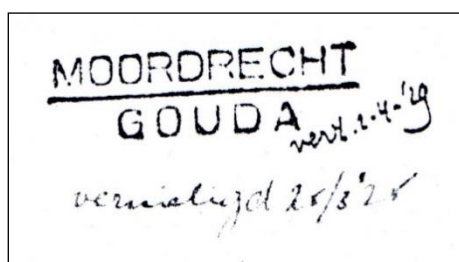 MOORDRECHT
GOUDA
vert. 2-4-'29
vernietigd 25/3 '25